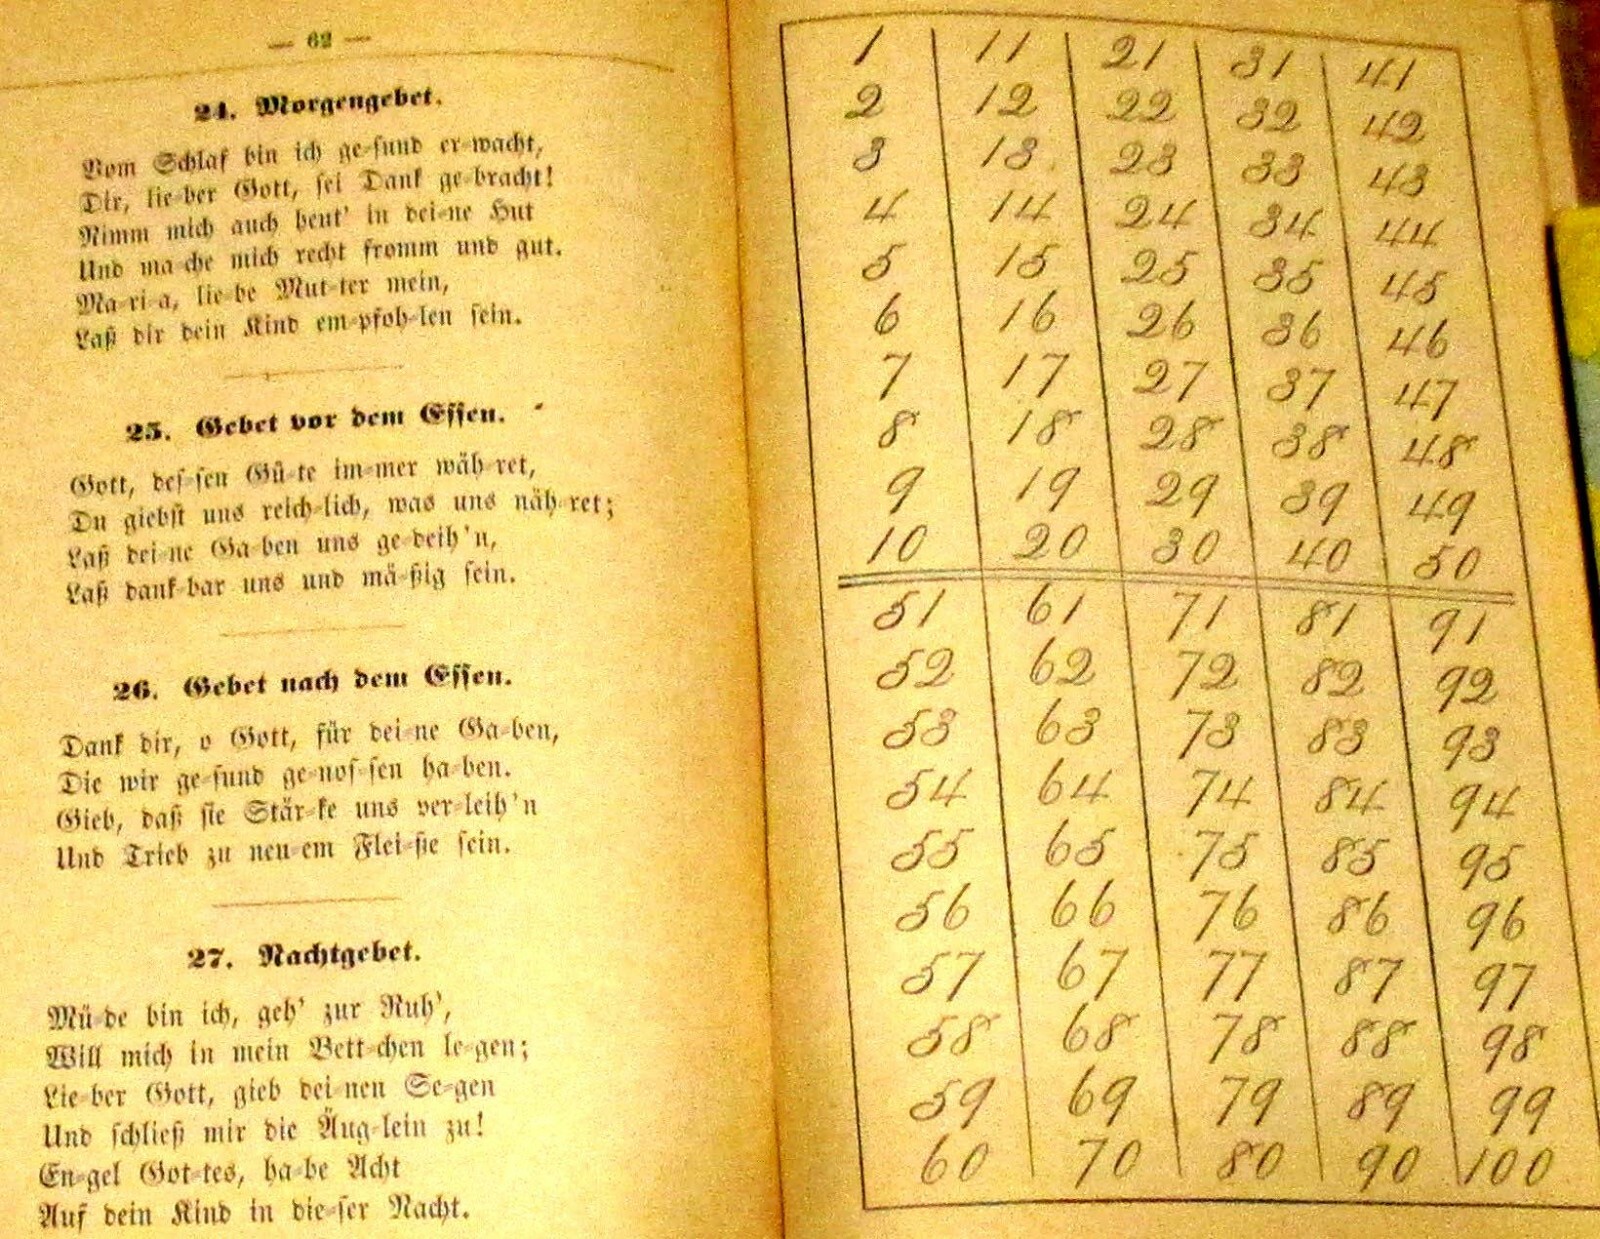 — 62 —
24. Morgengebet.
Vom Schlaf bin ich ge-sund er-wacht,
Dir, lie-ber Gott, sei Dank ge-bracht!
Nimm mich auch heut' in dei-ne Hut
Und ma-che mich recht fromm und gut.
Ma-ri-a, lie-be Mut-ter mein,
Laß dir dein Kind em-pfoh-len sein.
25. Gebet vor dem Essen.
Gott, des-sen Gü-te im-mer wäh-ret,
Du giebst uns reich-lich, was uns näh-ret;
Laß dei-ne Ga-ben uns ge-deih'n,
Laß dank-bar uns und mä-ßig sein.
26. Gebet nach dem Essen.
Dank dir, o Gott, für dei-ne Ga-ben,
Die wir ge-sund ge-nos-sen ha-ben.
Gieb, daß sie Stär-ke uns ver-leih'n
Und Trieb zu neu-em Flei-ße sein.
27. Nachtgebet.
Mü-de bin ich, geh' zur Ruh',
Will mich in mein Bett-chen le-gen;
Lie-ber Gott, gieb dei-nen Se-gen
Und schließ mir die Äug-lein zu!
En-gel Got-tes, ha-be Acht
Auf dein Kind in die-ser Nacht.
1 11 21 31 41
2 12 22 32 42
3 13 23 33 43
4 14 24 34 44
5 15 25 35 45
6 16 26 36 46
7 17 27 37 47
8 18 28 38 48
9 19 29 39 49
10 20 30 40 50
51 61 71 81 91
52 62 72 82 92
53 63 73 83 93
54 64 74 84 94
55 65 75 85 95
56 66 76 86 96
57 67 77 87 97
58 68 78 88 98
59 69 79 89 99
60 70 80 90 100